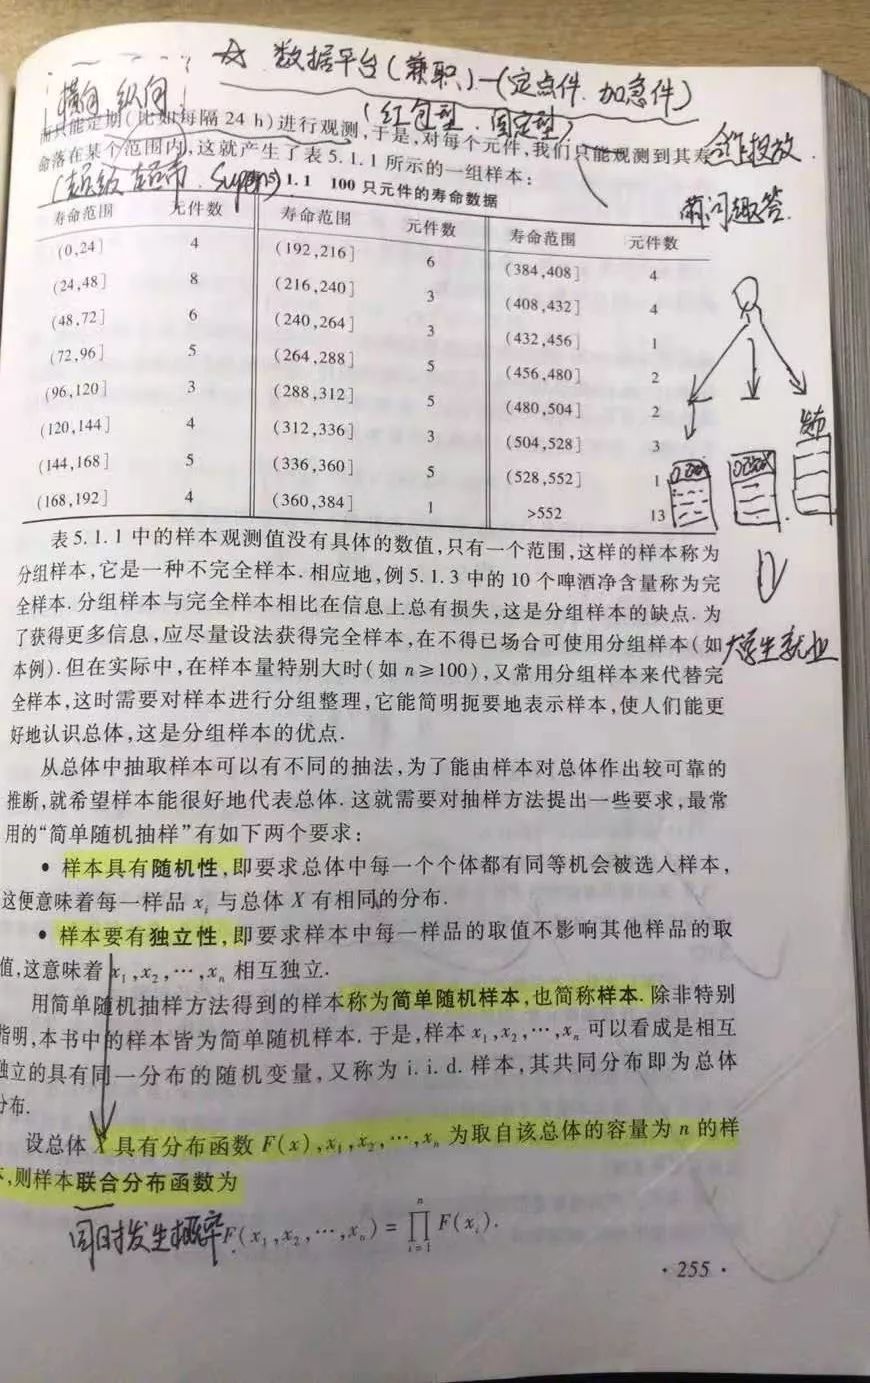 ☆ 数据平台(兼职)—(定点件、加急件)
横向、纵向
(红包型、固定型)
而只能定期(比如每隔 24 h)进行观测,于是,对每个元件,我们只能观测到其寿
合作投放
命落在某个范围内,这就产生了表 5.1.1 所示的一组样本:
(超级超市、super)
有问趣答
1.1 100 只元件的寿命数据
寿命范围 元件数 寿命范围 元件数 寿命范围 元件数
(0,24] 4 (192,216] 6 (384,408] 4
(24,48] 8 (216,240] 3 (408,432] 4
(48,72] 6 (240,264] 3 (432,456] 1
(72,96] 5 (264,288] 5 (456,480] 2
(96,120] 3 (288,312] 5 (480,504] 2
(120,144] 4 (312,336] 3 (504,528] 3
(144,168] 5 (336,360] 5 (528,552] 1
(168,192] 4 (360,384] 1 >552 13
表 5.1.1 中的样本观测值没有具体的数值,只有一个范围,这样的样本称为
分组样本,它是一种不完全样本.相应地,例 5.1.3 中的 10 个啤酒净含量称为完
全样本.分组样本与完全样本相比在信息上总有损失,这是分组样本的缺点.为
了获得更多信息,应尽量设法获得完全样本,在不得已场合可使用分组样本(如
本例).但在实际中,在样本量特别大时(如 n≥100),又常用分组样本来代替完
大学生就业
全样本,这时需要对样本进行分组整理,它能简明扼要地表示样本,使人们能更
好地认识总体,这是分组样本的优点.
从总体中抽取样本可以有不同的抽法,为了能由样本对总体作出较可靠的
推断,就希望样本能很好地代表总体.这就需要对抽样方法提出一些要求,最常
用的“简单随机抽样”有如下两个要求:
• 样本具有随机性,即要求总体中每一个个体都有同等机会被选入样本,
这便意味着每一样品 xᵢ 与总体 X 有相同的分布.
• 样本要有独立性,即要求样本中每一样品的取值不影响其他样品的取
值,这意味着 x₁,x₂,⋯,xₙ 相互独立.
用简单随机抽样方法得到的样本称为简单随机样本,也简称样本.除非特别
指明,本书中的样本皆为简单随机样本.于是,样本 x₁,x₂,⋯,xₙ 可以看成是相互
独立的具有同一分布的随机变量,又称为 i.i.d.样本,其共同分布即为总体
分布.
设总体 X 具有分布函数 F(x),x₁,x₂,⋯,xₙ 为取自该总体的容量为 n 的样
本,则样本联合分布函数为
同时发生概率 F(x₁,x₂,⋯,xₙ) = ∏ᵢ₌₁ⁿ F(xᵢ).
· 255 ·